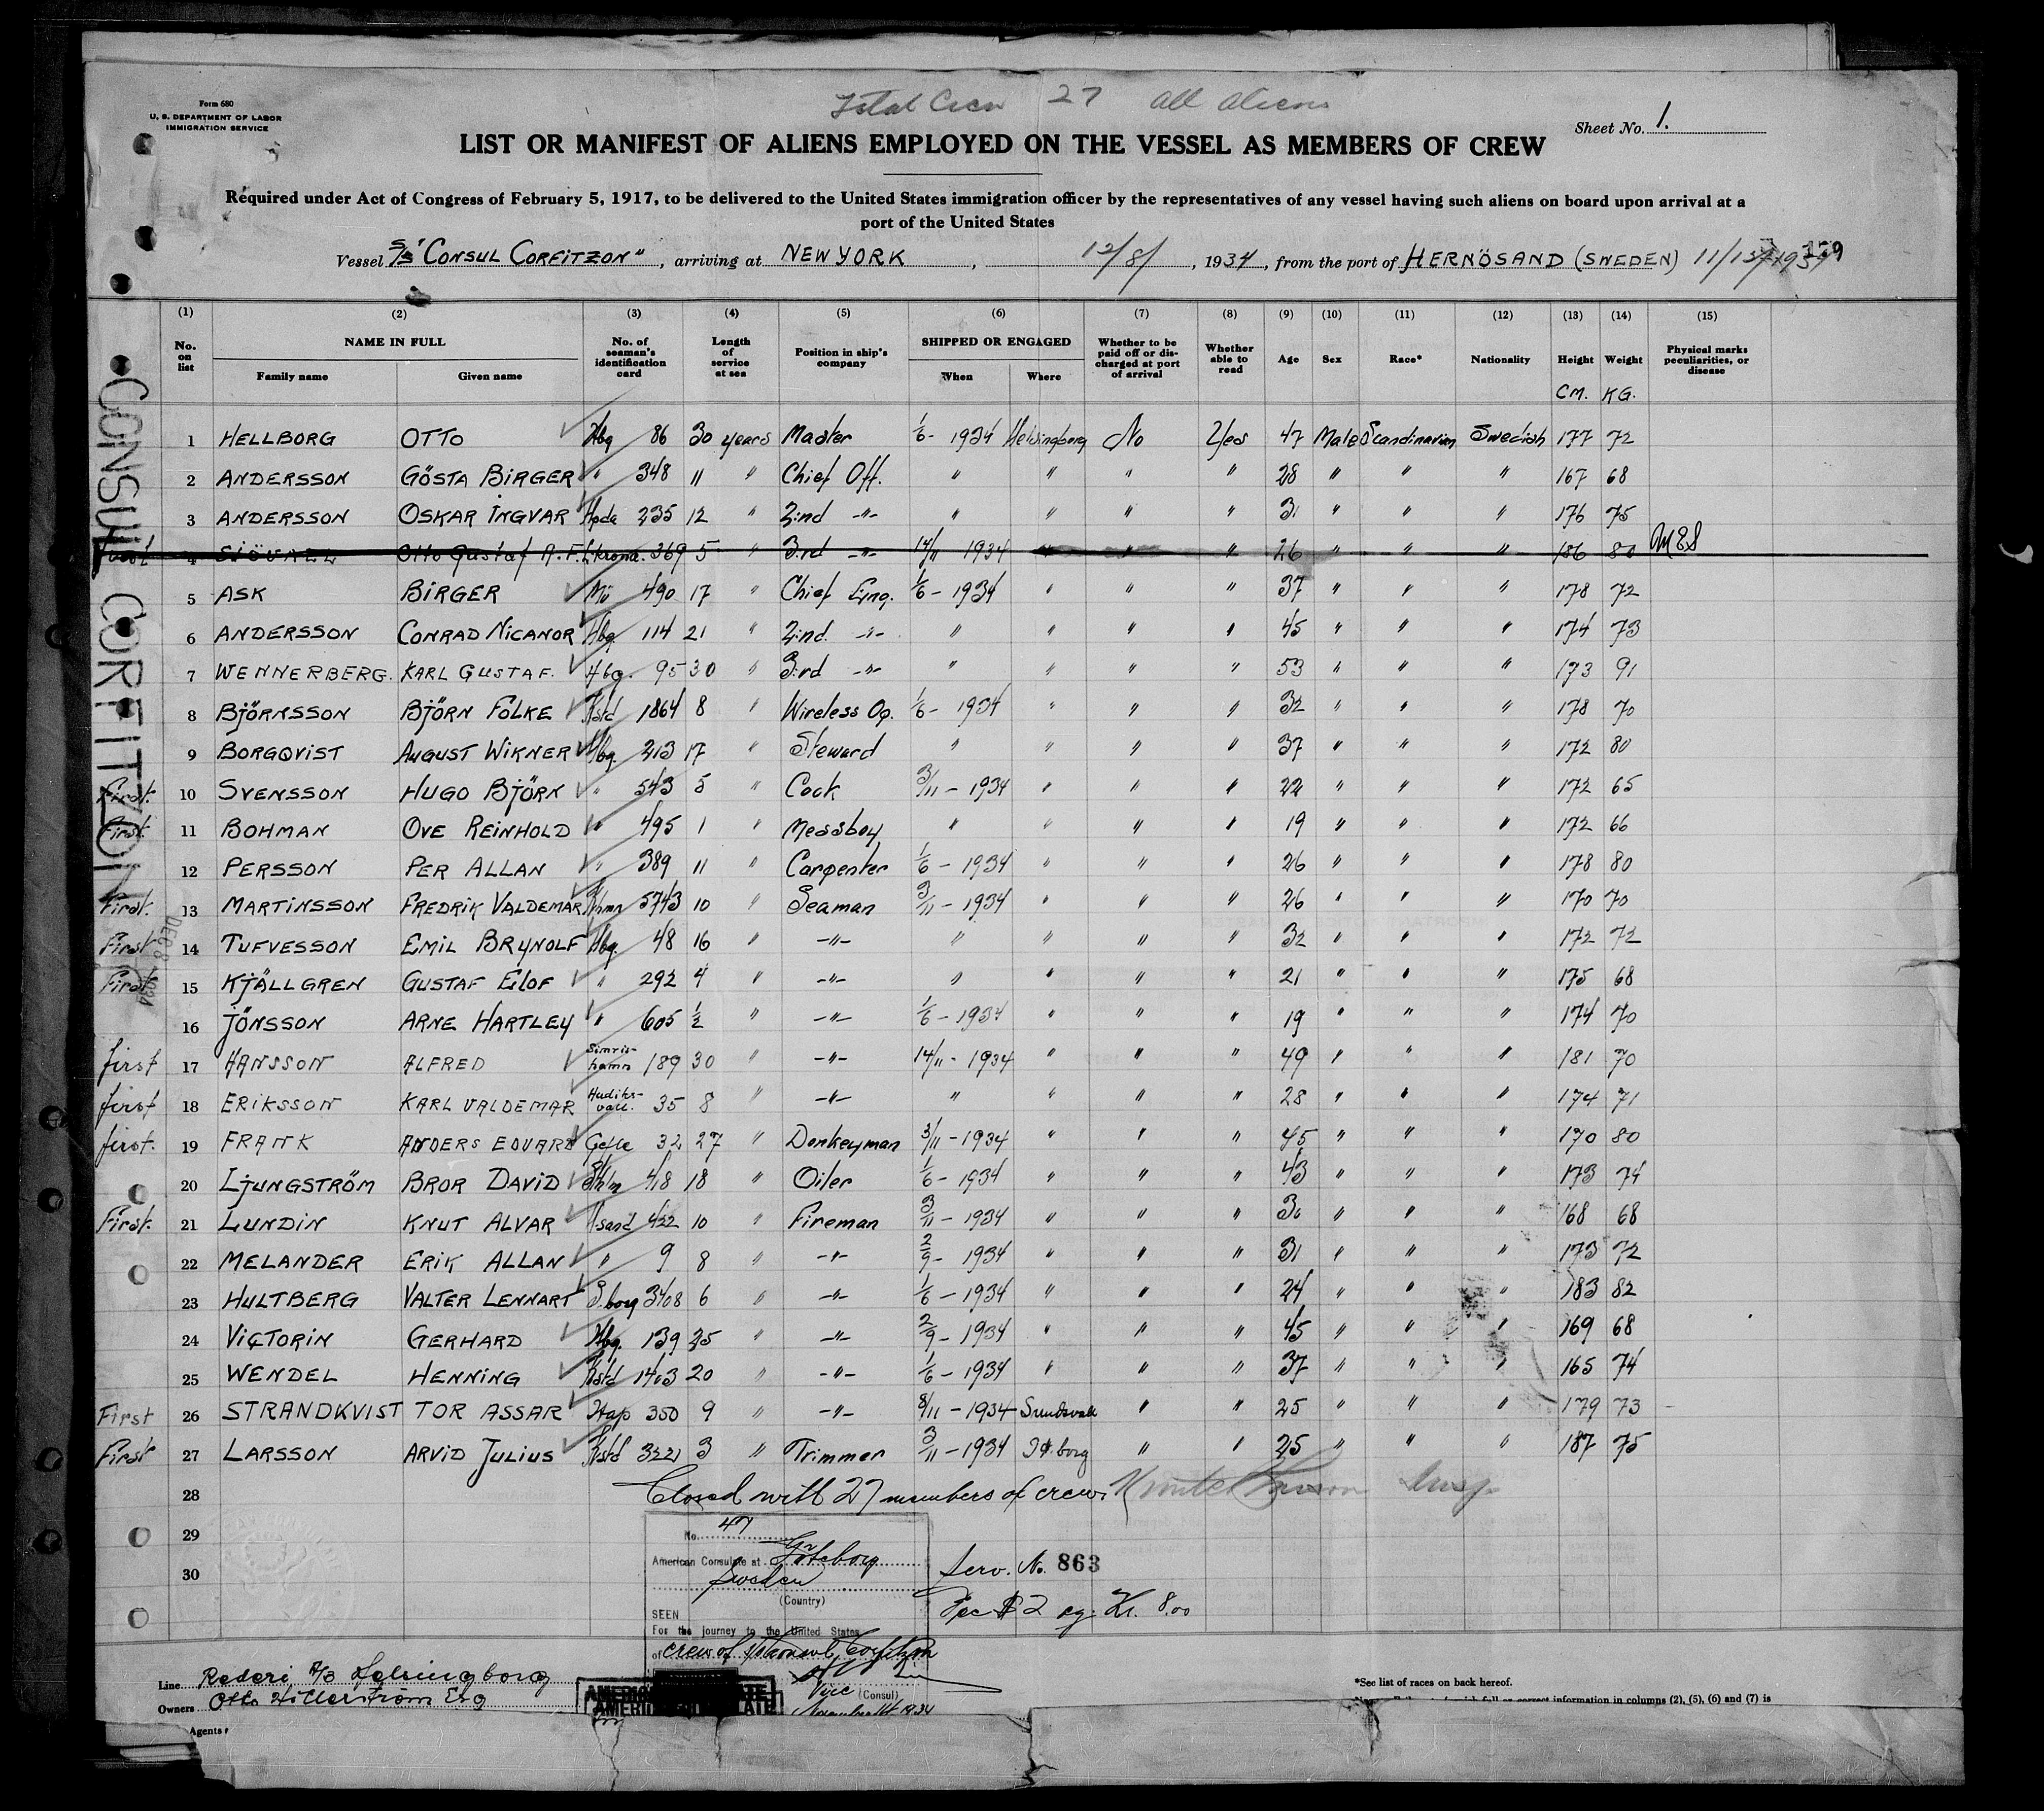 Total Crew 27 All Aliens
Form 680
U. S. DEPARTMENT OF LABOR
IMMIGRATION SERVICE
Sheet No. 1.
LIST OR MANIFEST OF ALIENS EMPLOYED ON THE VESSEL AS MEMBERS OF CREW
Required under Act of Congress of February 5, 1917, to be delivered to the United States immigration officer by the representatives of any vessel having such aliens on board upon arrival at a
port of the United States
Vessel S/S "CONSUL CORFITZON", arriving at NEW YORK, 12/8/, 1934, from the port of HERNÖSAND (SWEDEN)
(1) (2) (3) (4) (5) (6) (7) (8) (9) (10) (11) (12) (13) (14) (15)
No. on list NAME IN FULL Family name Given name No. of seaman's identification card Length of service at sea Position in ship's company SHIPPED OR ENGAGED When Where Whether to be paid off or discharged at port of arrival Whether able to read Age Sex Race* Nationality Height Weight Physical marks peculiarities, or disease
CM. KG.
CONSUL CORFITZON
1 HELLBORG OTTO Hbg 86 30 years Master 1/6 - 1934 Helsingborg No Yes 47 Male Scandinavian Swedish 177 72
2 ANDERSSON GÖSTA BIRGER " 348 11 " Chief Off. " " " " 28 " " " 167 68
3 ANDERSSON OSKAR INGVAR 235 12 " 2:nd -"- " " " " 31 " " " 176 75
4 Otto Gustaf A. F. 369 5 " 3:rd -"- 14/11 1934 " " " 26 " " " 186 80
5 ASK BIRGER Mö 490 17 " Chief Eng. 1/6 - 1934 " " " 37 " " " 178 72
6 ANDERSSON CONRAD NICANOR Hbg. 114 21 " 2:nd -"- " " " " 45 " " " 174 73
7 WENNERBERG. KARL GUSTAF. Hbg. 95 30 " 3:rd -"- " " " " 53 " " " 173 91
8 BJÖRNSSON BJÖRN FOLKE Kstd 1864 8 " Wireless Op. 1/6 - 1934 " " " 32 " " " 178 70
9 BORGQVIST AUGUST WIKNER Hbg 213 17 " Steward " " " " 37 " " " 172 80
First. 10 SVENSSON HUGO BJÖRN " 543 5 " Cook 3/11 - 1934 " " " 22 " " " 172 65
First. 11 BOHMAN OVE REINHOLD " 495 1 " Messboy " " " " 19 " " " 172 66
12 PERSSON PER ALLAN " 389 11 " Carpenter 1/6 - 1934 " " " 26 " " " 178 80
First. 13 MARTINSSON FREDRIK VALDEMAR 5743 10 " Seaman 3/11 - 1934 " " " 26 " " " 170 70
First 14 TUFVESSON EMIL BRYNOLF Hbg. 48 16 " -"- " " " " 32 " " " 172 72
First 15 KJÄLLGREN GUSTAF ELOF " 292 4 " -"- " " " " 21 " " " 175 68
16 JÖNSSON ARNE HARTLEY " 605 1/2 " -"- 1/6 - 1934 " " " 19 " " " 174 70
first 17 HANSSON ALFRED Simrishamn 189 30 " -"- 14/11 - 1934 " " " 49 " " " 181 70
first 18 ERIKSSON KARL VALDEMAR Hudiksvall. 35 8 " -"- " " " " 28 " " " 174 71
first. 19 FRANK ANDERS EDVARD Gefle 32 27 " Donkeyman 3/11 - 1934 " " " 45 " " " 170 80
20 LJUNGSTRÖM BROR DAVID Sthlm 418 18 " Oiler 1/6 - 1934 " " " 43 " " " 173 74
First. 21 LUNDIN KNUT ALVAR 422 10 " Fireman 3/11 - 1934 " " " " " " 168 68
22 MELANDER ERIK ALLAN " 9 8 " -"- 2/9 - 1934 " " " 31 " " " 173 72
23 HULTBERG VALTER LENNART G.borg 3408 6 " -"- 1/6 - 1934 " " " 24 " " " 183 82
24 VICTORIN GERHARD Hbg. 139 25 " -"- 2/9 - 1934 " " " 45 " " " 169 68
25 WENDEL HENNING Kstd 1403 20 " -"- 1/6 - 1934 " " " 37 " " " 165 74
First 26 STRANDKVIST TOR ASSAR Hap 350 9 " -"- 8/11 - 1934 Sundsvall " " 25 " " " 179 73
First 27 LARSSON ARVID JULIUS Kstd 3221 3 " Trimmer 3/11 - 1934 Gt.borg " " 25 " " " 187 75
28 Closed with 27 members of crew.
29
30
No. 47
American Consulate at Göteborg
Sweden
(Country)
SEEN
For the journey to the United States
of crew of s/s Consul Corfitzon
Vice (Consul)
November 14 1934
Serv. No. 863
Fee $ 2 eq. Kr. 8.00
Line Rederi A/B Helsingborg
Owners Otto Hillerström Esq
Agents
*See list of races on back hereof.
full or correct information in columns (2), (5), (6) and (7) is